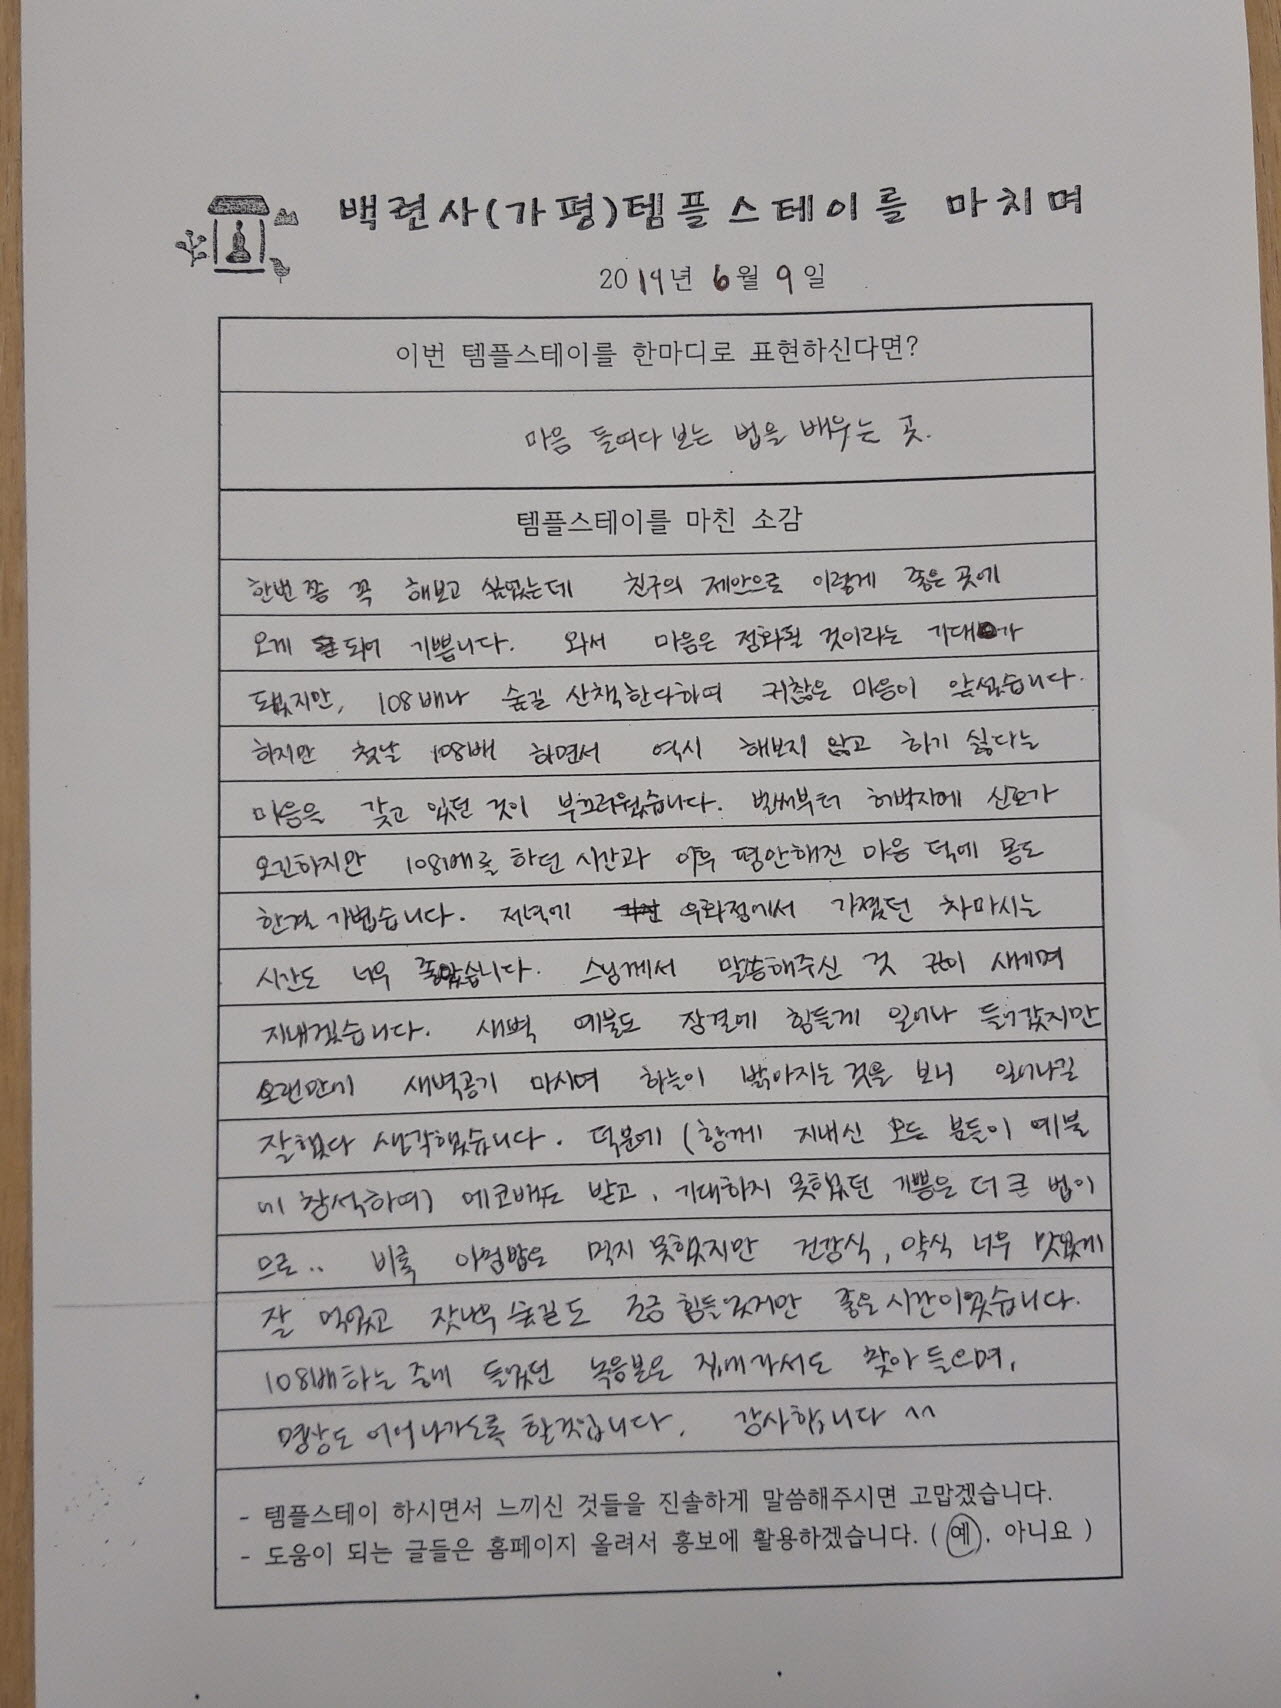 백련사(가평)템플스테이를 마치며
2019년 6월 9일
이번 템플스테이를 한마디로 표현하신다면?
마음 들여다 보는 법을 배우는 곳.
템플스테이를 마친 소감
한번쯤 꼭 해보고 싶었는데 친구의 제안으로 이렇게 좋은 곳에
오게 되어 기쁩니다. 와서 마음은 정화될 것이라는 기대가
됐지만, 108배나 숲길 산책한다하여 귀찮은 마음이 앞섰습니다.
하지만 첫날 108배 하면서 역시 해보지 않고 하기 싫다는
마음을 갖고 있던 것이 부끄러웠습니다. 벌써부터 허벅지에 신호가
오긴하지만 108배를 하던 시간과 이후 평안해진 마음 덕에 몸도
한결 가볍습니다. 저녁에 우화정에서 가졌던 차마시는
시간도 너무 좋았습니다. 스님께서 말씀해주신 것 깊이 새기며
지내겠습니다. 새벽 예불도 잠결에 힘들게 일어나 들어갔지만
오랜만에 새벽공기 마시며 하늘이 밝아지는 것을 보니 일어나길
잘했다 생각했습니다. 덕분에 (함께 지내신 모든 분들이 예불
에 참석하여) 에코백도 받고, 기대하지 못했던 기쁨은 더 큰 법이
므로.. 비록 아침밥은 먹지 못했지만 건강식, 약식 너무 맛있게
잘 먹었고 잣나무 숲길도 조금 힘들었지만 좋은 시간이었습니다.
108배하는 중에 들었던 녹음본은 집에가서도 찾아 들으며,
명상도 이어나가도록 할것입니다. 감사합니다 ^^
- 템플스테이 하시면서 느끼신 것들을 진솔하게 말씀해주시면 고맙겠습니다.
- 도움이 되는 글들은 홈페이지 올려서 홍보에 활용하겠습니다. ( 예, 아니요 )